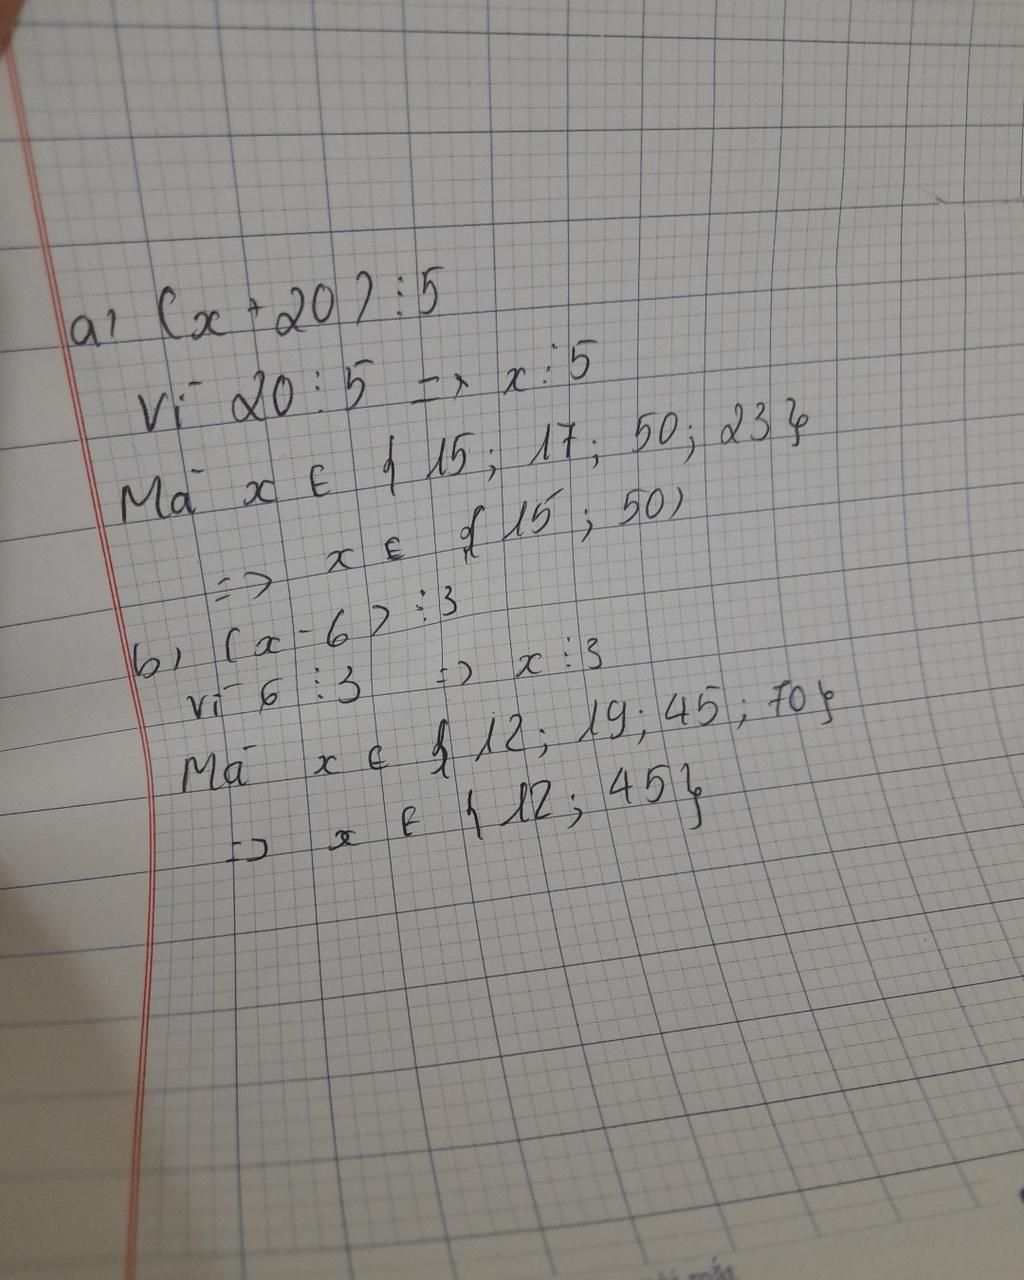 a) (x + 20) ⋮ 5
Vì 20 ⋮ 5 => x ⋮ 5
Mà x ∈ { 15; 17; 50; 23}
=> x ∈ { 15; 50)
b) (x - 6) ⋮ 3
Vì 6 ⋮ 3 => x ⋮ 3
Mà x ∈ { 12; 19; 45; 70}
=> x ∈ { 12; 45}